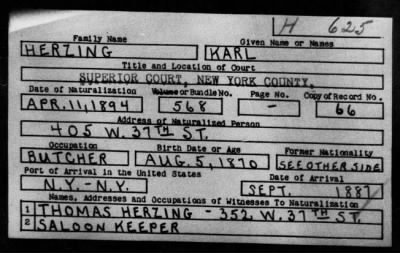 H 625
Family Name Given Name or Names
HERZING KARL
Title and Location of Court
SUPERIOR COURT, NEW YORK COUNTY.
Date of Naturalization Volume or Bundle No. Page No. Copy of Record No.
APR. 11, 1894 568 - 66
Address of Naturalized Person
405 W. 37TH ST.
Occupation Birth Date or Age Former Nationality
BUTCHER AUG. 5, 1870 SEE OTHER SIDE
Port of Arrival in the United States Date of Arrival
N.Y. - N.Y. SEPT. 1887
Names, Addresses and Occupations of Witnesses To Naturalization
1 THOMAS HERZING - 352 W. 37TH ST.
2 SALOON KEEPER